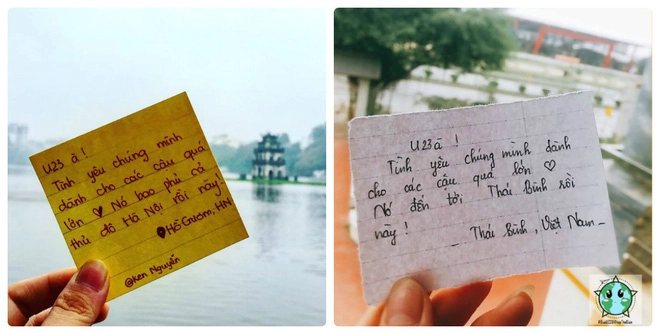 U23 à !
Tình yêu chúng mình
dành cho các cậu quá
lớn ♥ Nó bao phủ cả
thủ đô Hà Nội rồi này!
Hồ Gươm, HN
@Ken Nguyễn
U23 à !
Tình yêu chúng mình dành
cho các cậu quá lớn ♡
Nó đến tới Thái Bình rồi
này !
_ Thái Bình, Việt Nam _